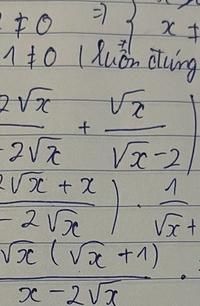 ≠ 0 ⇒ { x ≠
1 ≠ 0 (luôn đúng
2√x / - 2√x + √x / √x - 2
2√x + x / - 2√x ) · 1 / √x +
√x (√x + 1) / x - 2√x ·